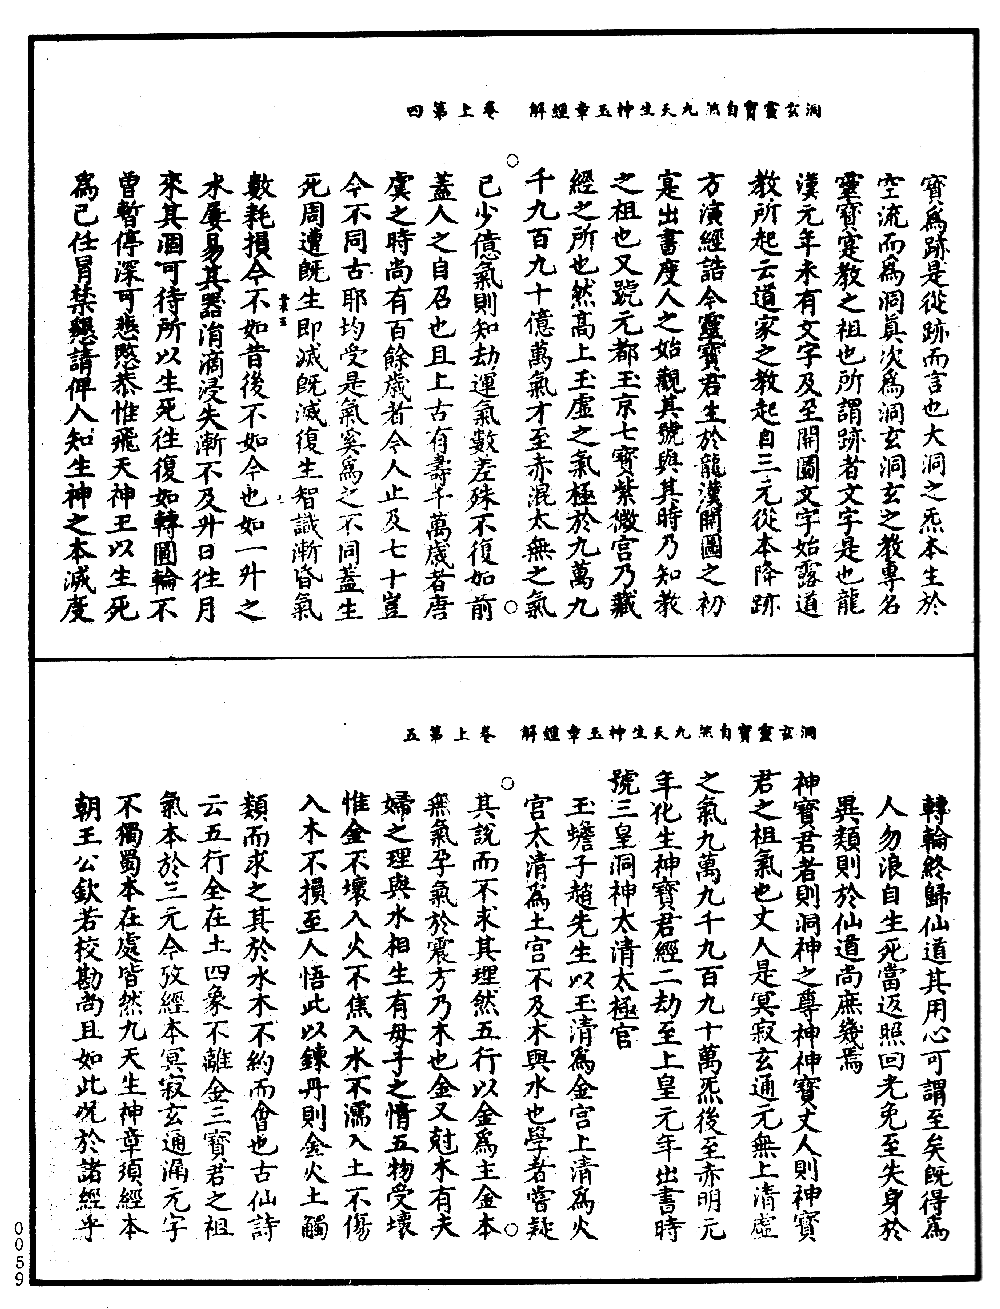 洞玄靈寶自然九天生神玉章經解　卷上第四
寶爲跡是從跡而言也大洞之炁本生於
空流而爲洞眞次爲洞玄洞玄之教專名
靈寶寔教之祖也所謂跡者文字是也龍
漢元年未有文字及至開圖文字始露道
教所起云道家之教起自三元從本降跡
方演經誥今靈寶君生於龍漢開圖之初
寔出書度人之始觀其號與其時乃知教
之祖也又號元都玉京七寶紫微宮乃藏
經之所也然高上玉虛之氣極於九萬九
千九百九十億萬氣才至赤混太無之氣
已少億氣則知劫運氣數差殊不復如前
蓋人之自召也且上古有壽千萬歲者唐
虞之時尚有百餘歲者今人止及七十豈
今不同古耶均受是氣奚爲之不同蓋生
死周遭旣生即滅旣滅復生智識漸昏氣
數耗損今不如昔後不如今也如一升之
水屢易其器涓滴浸失漸不及升日往月
來其涸可待所以生死往復如轉圓輪不
曾暫停深可悲愍恭惟飛天神王以生死
爲己任冒禁懇請俾人知生神之本滅度
洞玄靈寶自然九天生神玉章經解　卷上第五
轉輪終歸仙道其用心可謂至矣旣得爲
人勿浪自生死當返照回光免至失身於
異類則於仙道尚庶幾焉
神寶君者則洞神之尊神神寶丈人則神寶
君之祖氣也丈人是冥寂玄通元無上清虛
之氣九萬九千九百九十萬炁後至赤明元
年化生神寶君經二劫至上皇元年出書時
號三皇洞神太清太極宮
玉蟾子趙先生以玉清爲金宮上清爲火
宮太清爲土宮不及木與水也學者嘗疑
其說而不求其理然五行以金爲主金本
無氣孕氣於震方乃木也金又尅木有夫
婦之理與水相生有母子之情五物受壞
惟金不壞入火不焦入水不濡入土不傷
入木不損至人悟此以鍊丹則金火土觸
類而求之其於水木不約而會也古仙詩
云五行全在土四象不離金三寶君之祖
氣本於三元今攷經本冥寂玄通漏元字
不獨蜀本在處皆然九天生神章須經本
朝王公欽若校勘尚且如此况於諸經乎
0059